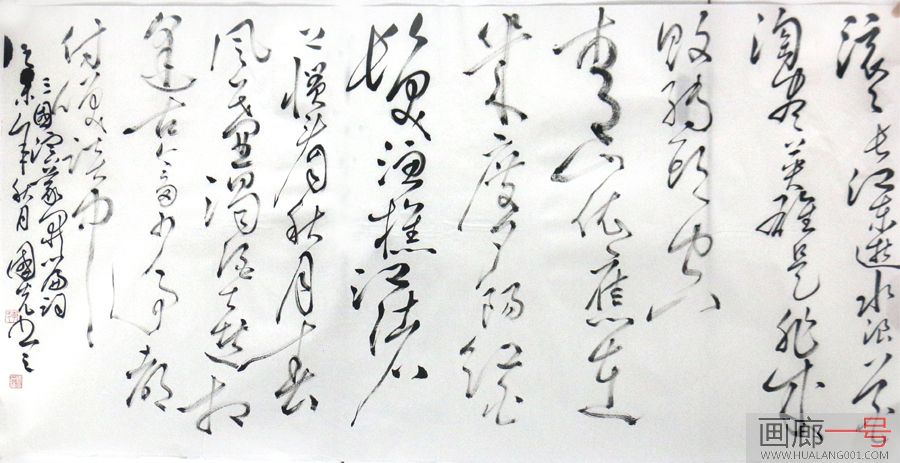 滚滚长江東逝水浪花
淘盡英雄是非成
败转头空
青山依舊在
几度夕陽红白
髮渔樵江渚
上惯看秋月春
風一壶濁酒喜相
逢古今多少事都
付笑谈中
三國演義開篇词
未年秋月
画廊一号
WWW.HUALANG001.COM